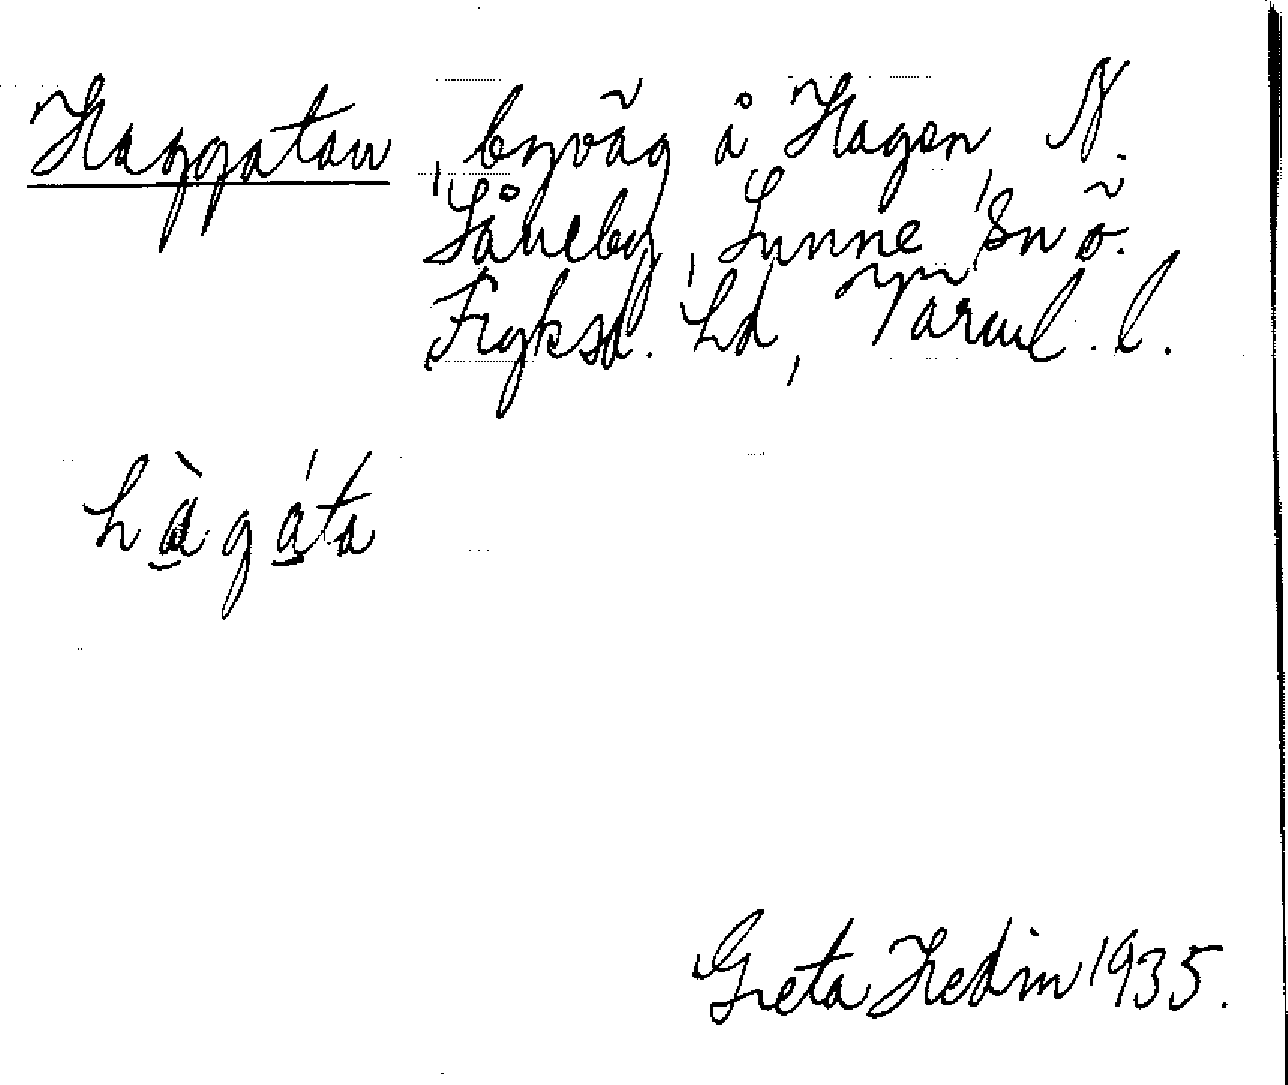 Haggatan, byväg å Hagen, N.
Såneby, Sunne, Sn ö.
Fryksd. hd, Värml. l.
hàgáta
Greta Hedin 1935.